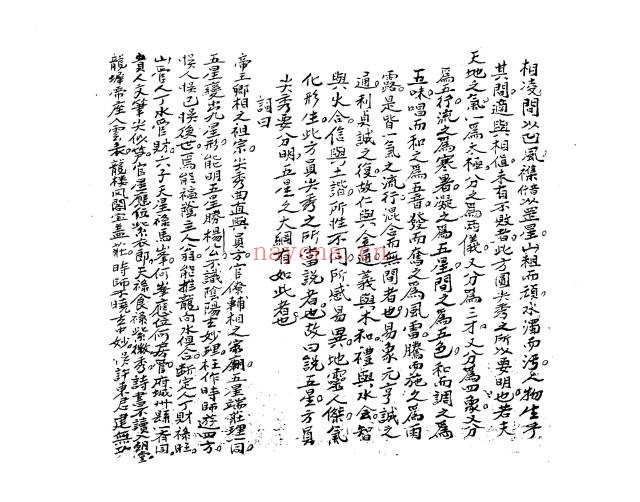 相凌間以凹風襍借以罡星山粗而頑水濁而污人物生于
其間適與相值未有不敗者此方圓尖秀之所以要明也若夫
天地之氣一為太極分之為兩儀又分為三才又分為四象又分
為五行流之為寒暑凝之為五星間之為五色和而調之為
五味唱而和之為五音發而奮之為風雷騰而施之為雨
露是皆一氣之流行混合而無間者也易象元亨誠之
通利貞誠之復故仁與金通義與木和禮與水会智
與火合信與土諧所性不同所感易異地靈人傑氣
化形生此方員尖秀之所當說者也故曰說五星方員
尖秀要分明五星之大綱有如此者也
詞曰
帝王卿相之祖宗尖秀曲直與員方官僚輔相之家廟五星端莊理一同
五星變出九星形能明五星勝楊公不識陰陽玄妙理枉作時師遊四方
悮人悮己悮後世焉能福蔭主人翁能推龍向水便合断定人丁財祿旺
山管人丁水管財六子天星祿馬峯何峯應位何房管府城州縣一看同
貴人文筆尖似笋官星應位紫衣郎天祿食祿紫微秀詩書不讀入朝堂
龍墀帝座入雲表龍楼凤閣宝盖莊時師不曉玄中妙
nayona.cn